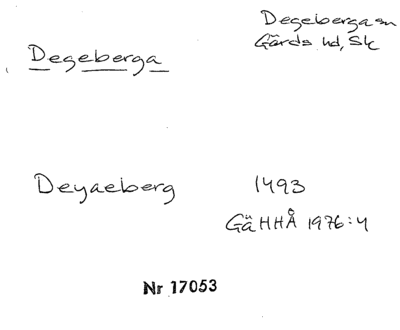 Degeberga sn
Gärds hd, Sk
Degeberga
Deyaeberg 1493
GäHHÅ 1976:4
Nr 17053